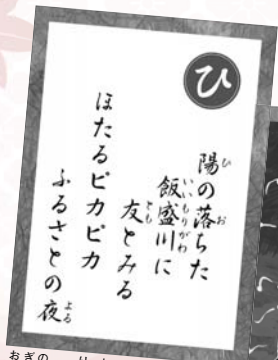 ひ
陽の落ちた
飯盛川に
友とみる
ほたるピカピカ
ふるさとの夜
ひ
お
いいもりがわ
とも
よる
おぎの